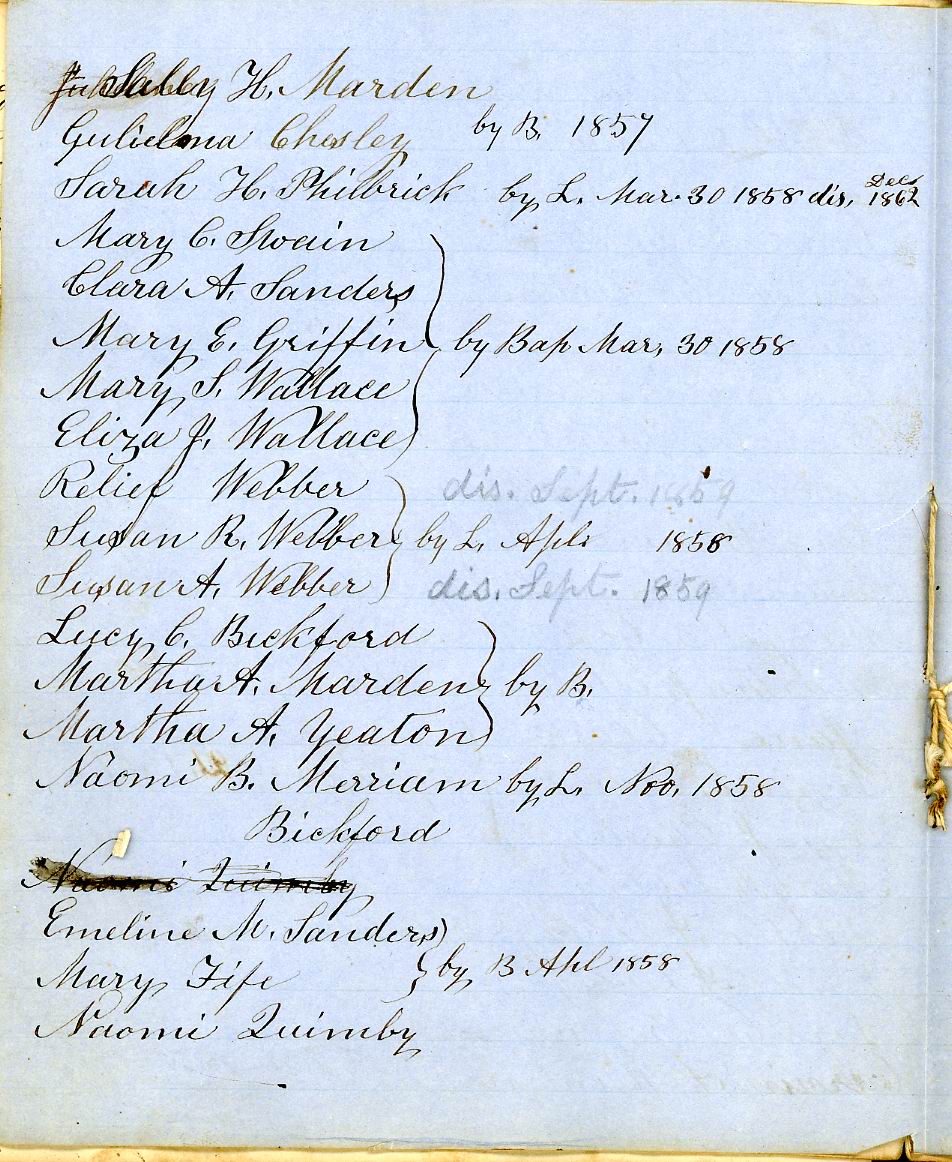 Sally H. Marden
Gulielma Chesley by B. 1857
Sarah H. Philbrick by L. Mar. 30 1858 dis. Dec 1862
Mary C. Swain
Clara A. Sanders
Mary E. Griffin by Bap Mar. 30 1858
Mary S. Wallace
Eliza J. Wallace
Relief Webber dis. Sept. 1859
Susan R. Webber by L. Apl. 1858
Susan A. Webber dis. Sept. 1859
Lucy C. Bickford
Martha A. Marden by B.
Martha A. Yeaton
Naomi B. Merriam by L. Nov. 1858
Bickford
Naomi Quimby
Emeline M. Sanders
Mary Fife by B Apl 1858
Naomi Quimby